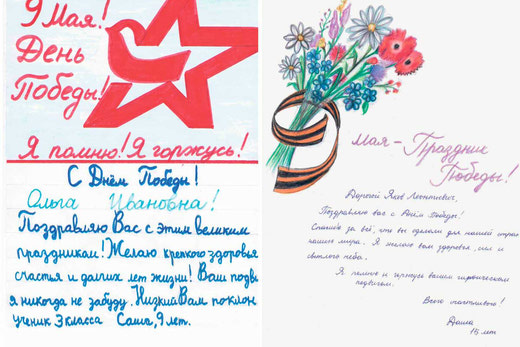 9 Мая!
День
Победы!
Я помню! Я горжусь!
С Днём Победы!
Ольга Ивановна!
Поздравляю Вас с этим великим
праздникам! Желаю крепкого здоровья
счастья и долгих лет жизни! Ваш подви
я никогда не забуду. Низкий Вам поклон
ученик 3 класса Саша, 9 лет.
Мая - Праздник
Победы!
Дорогой Яков Леонтьевич,
Поздравляю вас с Днём Победы!
Спасибо за всё, что вы сделали для нашей стран
нашего мира. Я желаю вам здоровья, сил и
светлого неба.
Я помню и горжусь вашим героическим
подвигом.
Всего счастливого!
Даша
15 лет